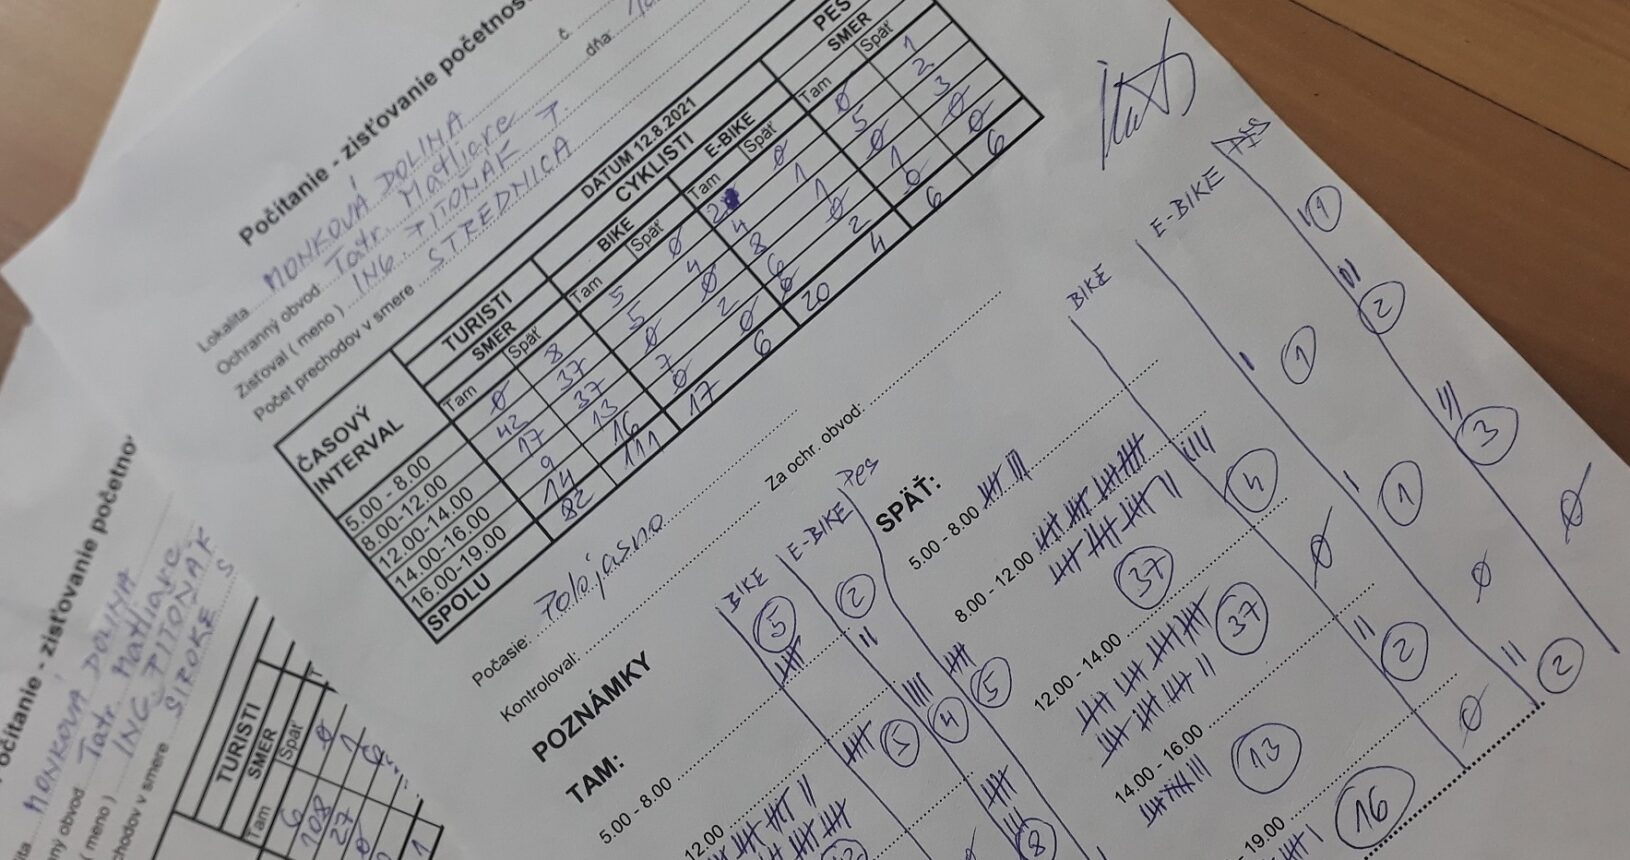 Počítanie - zisťovanie početnos
č.
dňa:
Lokalita MONKOVÁ DOLINA
Ochranný obvod: Tatr. Matliare
Zisťoval ( meno ) ING. PITOŇÁK J.
Počet prechodov v smere STREDNICA
DATUM 12.8.2021
ČASOVÝ INTERVAL TURISTI CYKLISTI PES
SMER BIKE E-BIKE SMER
Tam Späť Tam Späť Tam Späť Tam Späť
5.00 - 8.00 Ø 8 5 Ø 2 Ø Ø 1
8.00-12.00 42 37 5 4 4 1 5 2
12.00-14.00 17 37 Ø Ø 8 1 Ø 3
14.00-16.00 9 13 7 2 6 Ø 1 Ø
16.00-19.00 14 16 Ø Ø Ø 2 Ø Ø
SPOLU 82 111 17 6 20 4 6 6
Počasie: Polojasno
Kontroloval: Za ochr. obvod:
POZNÁMKY
BIKE E-BIKE Pes
TAM:
5.00 - 8.00 5 2
12.00 5 4 5
8
SPÄŤ:
BIKE E-BIKE PES
5.00 - 8.00 1
8.00 - 12.00 37 4 1 2
12.00 - 14.00 37 Ø 1 3
14.00 - 16.00 13 2 Ø Ø
- 19.00 16 Ø 2
očítanie - zisťovanie početno
MONKOVÁ DOLINA
obvod Tatr. Matliare
( meno ) ING. PITOŇÁK
chodov v smere ŠIROKÉ S
TURISTI
SMER
Tam Späť
6 Ø
108 1
27